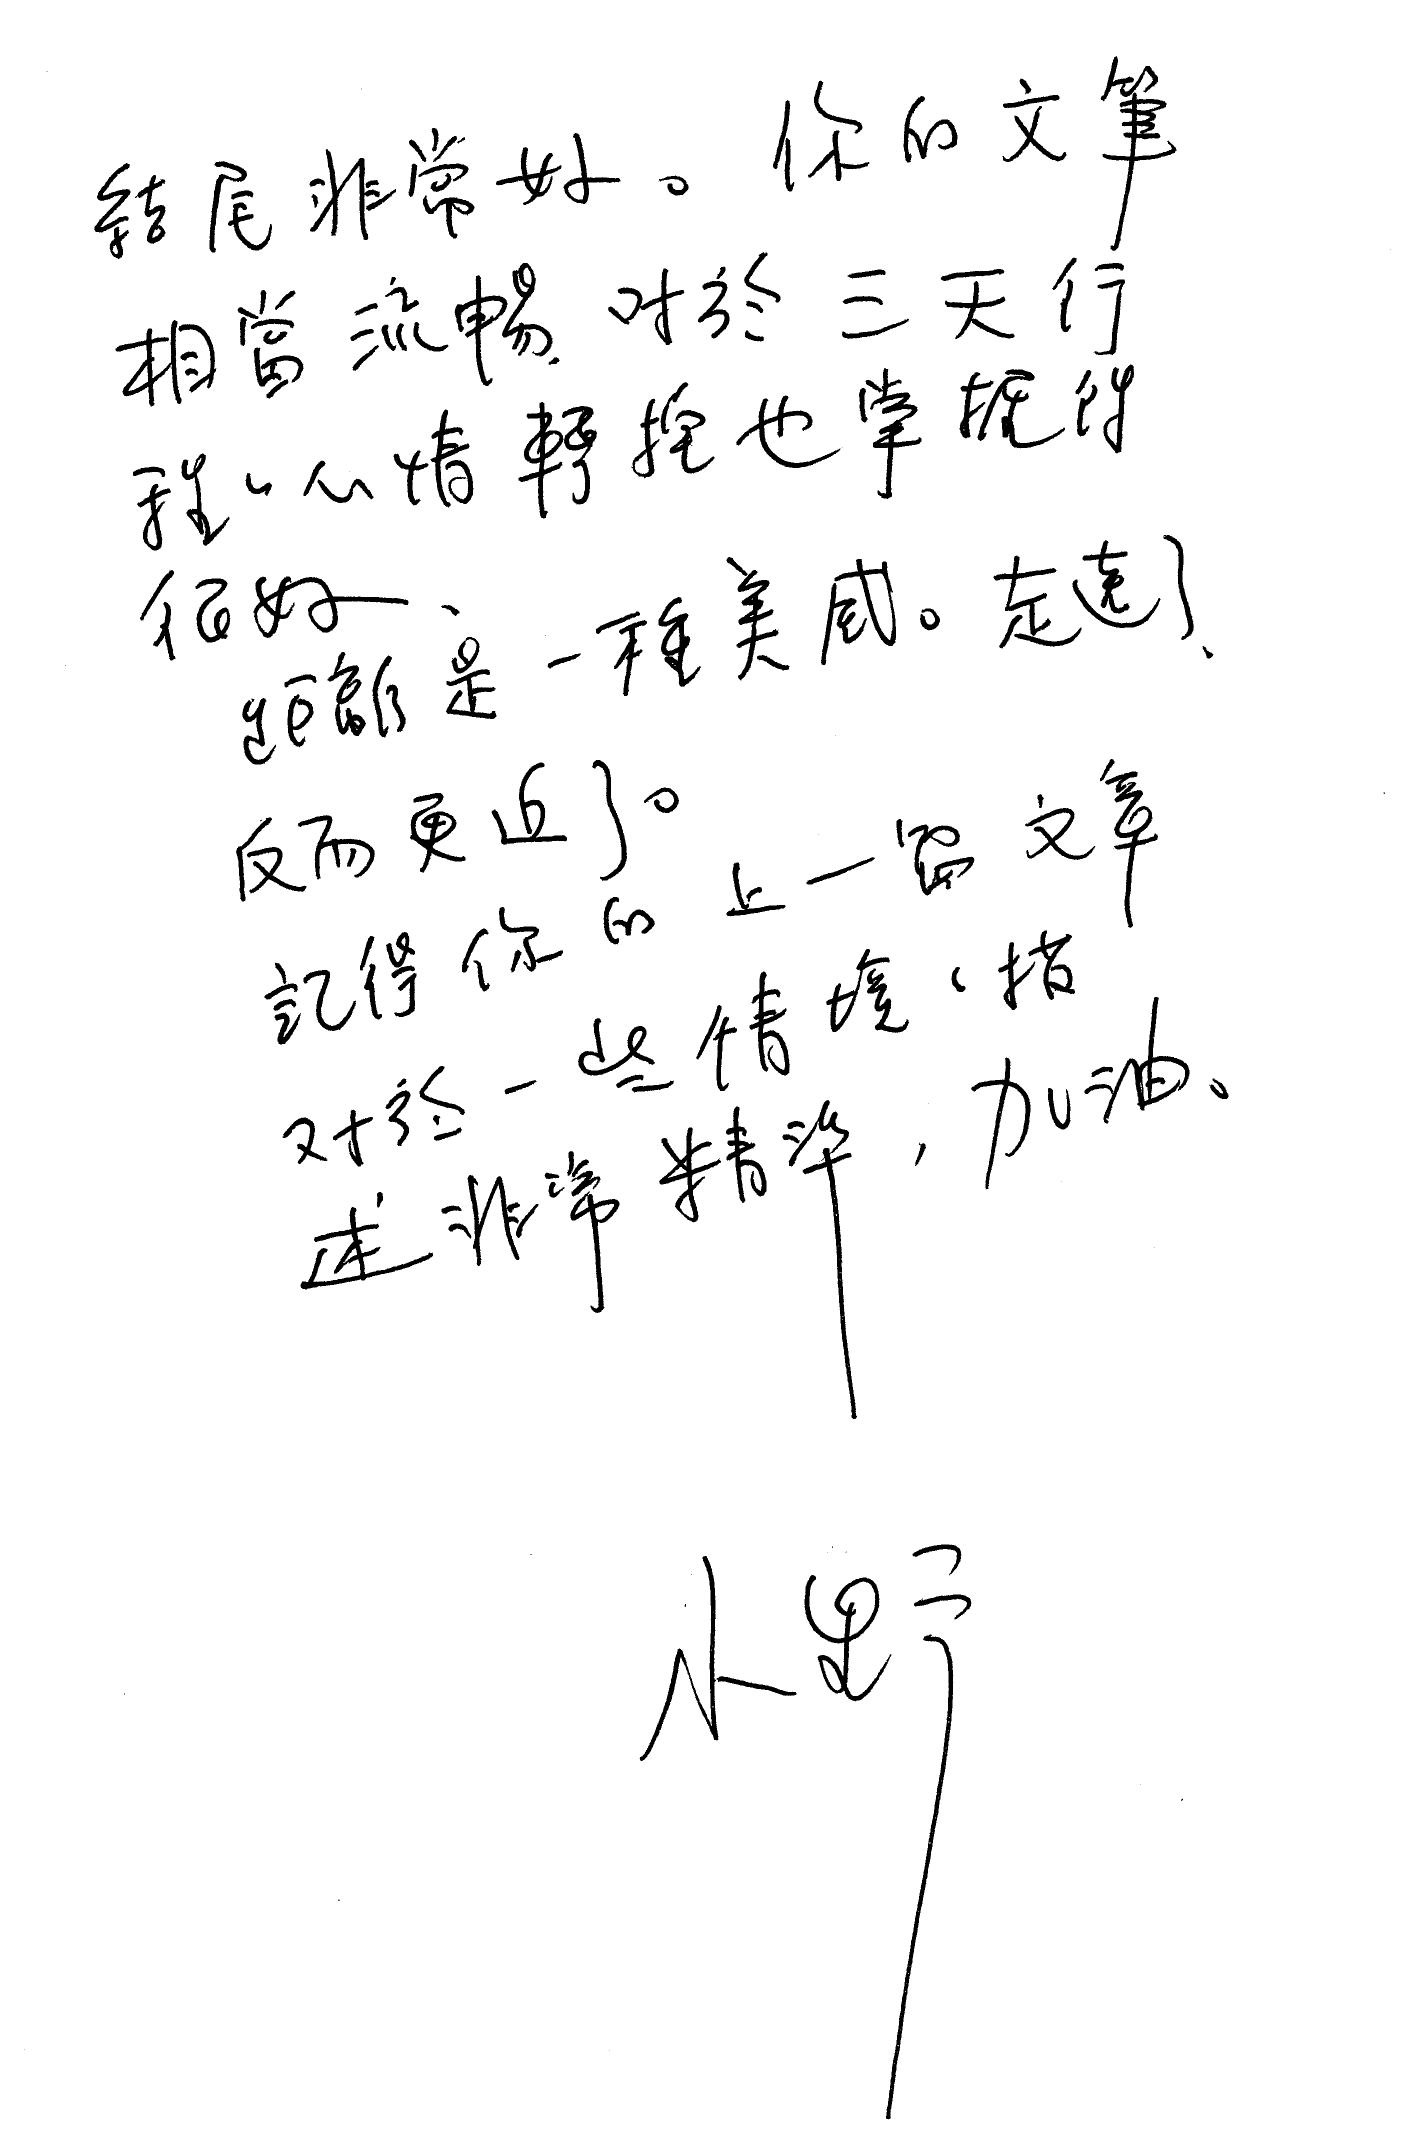 結尾非常好。你的文筆
相當流暢、对於三天行
程、心情轉換也掌握得
很好、
距離是一種美感。走遠了、
反而更近了。
記得你的上一篇文章
对於一些情境、描
述非常精準，加油、
小野